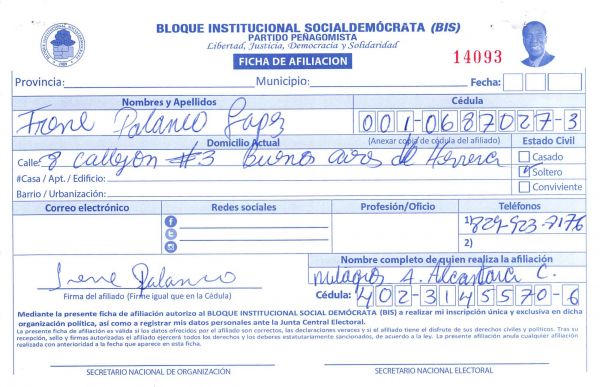 BLOQUE INSTITUCIONAL SOCIALDEMÓCRATA (BIS)
PARTIDO PEÑAGOMISTA
Libertad, Justicia, Democracia y Solidaridad
FICHA DE AFILIACION
14093
Provincia: Municipio: Fecha:
Nombres y Apellidos Cédula
Irene Polanco Lopez 001-0687027-3
Domicilio Actual (Anexar copia de cédula del afiliado) Estado Civil
Calle: 8 callejon #3 Buenos aires de Herrera
Casado
#Casa / Apt. / Edificio: Soltero
Barrio / Urbanización: Conviviente
Correo electrónico Redes sociales Profesión/Oficio Teléfonos
1) 829-923-7176
2)
Nombre completo de quien realiza la afiliación
Irene Polanco milagros A. Alcantara C.
Firma del afiliado (Firme igual que en la Cédula) Cédula: 402-3145570-6
Mediante la presente ficha de afiliación autorizo al BLOQUE INSTITUCIONAL SOCIAL DEMÓCRATA (BIS) a realizar mi inscripción única y exclusiva en dicha
organización política, así como a registrar mis datos personales ante la Junta Central Electoral.
La presente ficha de afiliación es válida si los datos ofrecidos por el afiliado son correctos, las declaraciones veraces y si el afiliado tiene el disfrute de sus derechos civiles y políticos. Tras su
recepción, sello y firmas autorizadas el afiliado ejercerá todos los derechos y los deberes estatutariamente sancionados, de acuerdo a la ley. La presente afiliación anula cualquier afiliación
realizada con anterioridad a la fecha que aparece en esta ficha.
SECRETARIO NACIONAL DE ORGANIZACIÓN SECRETARIO NACIONAL ELECTORAL